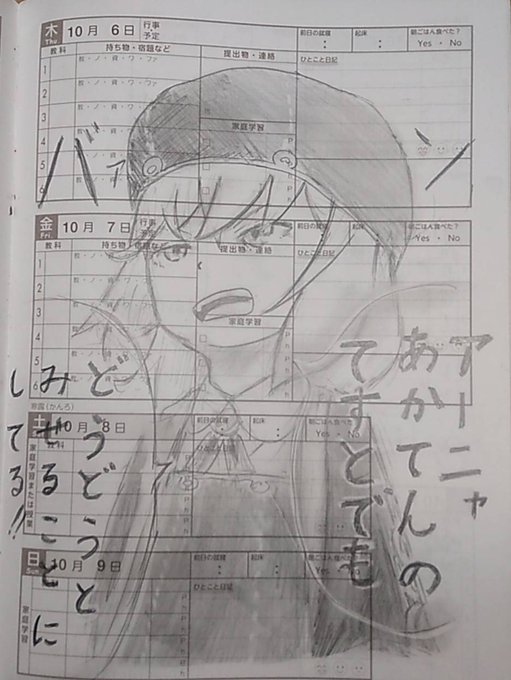 木 Thu. 10月 6日 行事予定 前日の就寝 : 起床 : 朝ごはん食べた? Yes・No
教科 持ち物・宿題など 提出物・連絡 ひとこと日記
1 教・ノ・資・ワ・ファ
2
3
4 家庭学習
5
6
バァン
金 Fri. 10月 7日 行事予定 前日の就寝 起床 朝ごはん食べた? Yes・No
教科 持ち物・宿題など 提出物・連絡 ひとこと日記
1
2
3
4 家庭学習
5
6
寒露(かんろ)
土 10月 8日 前日の就寝 : 起床 : Yes・No
家庭学習または授業 ひとこと日記
日 Sun. 10月 9日 前日の就寝 : 起床 : 朝ごはん食べた? Yes・No
家庭学習 ひとこと日記
アーニャ
あかてんの
てすとでも
どうどうと
みせることに
してる!!